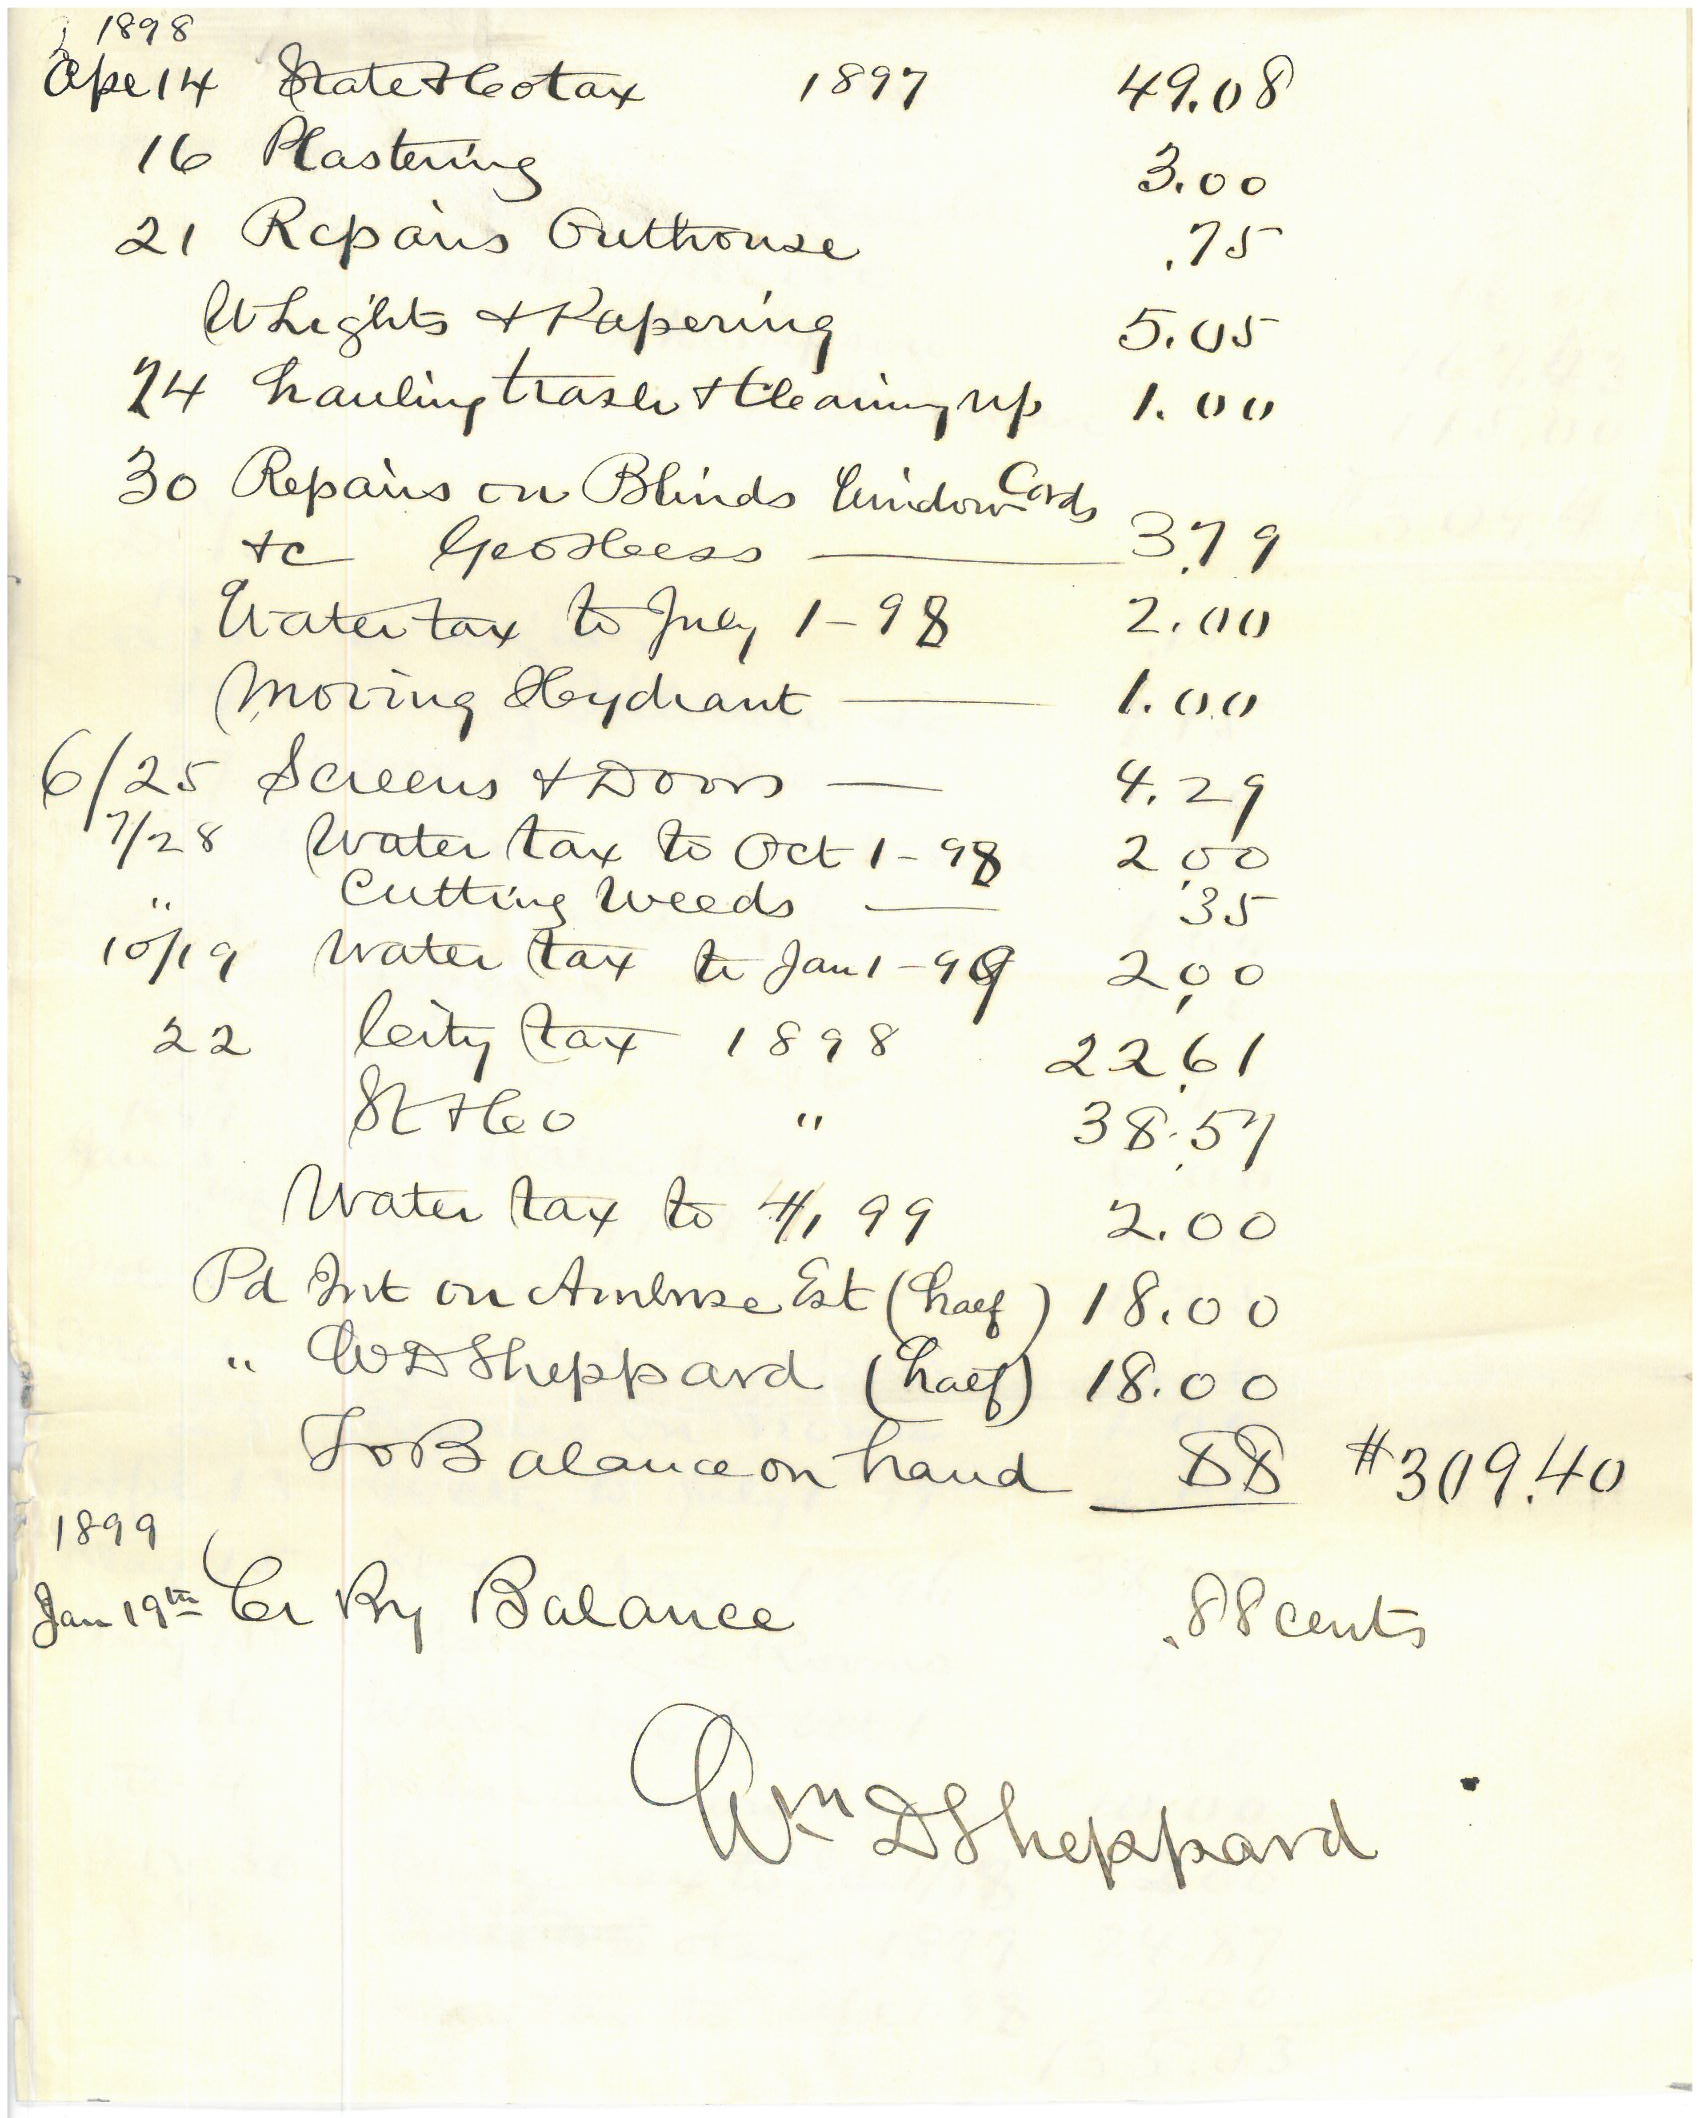 1898
Apl 14 State & Co tax 1897 49.08
16 Plastering 3.00
21 Repairs Outhouse .75
W Lights & Papering 5.05
24 hauling trash & Cleaning up 1.00
30 Repairs on Blinds Window Cords
&c Geo Hess 3.79
Water tax to July 1-98 2.00
Moving Hydrant 1.00
6/25 Screens & Doors 4.29
7/28 Water tax to Oct 1-98 2.00
" Cutting Weeds .35
10/19 Water tax to Jan 1-99 2.00
22 City tax 1898 22.61
St & Co " 38.57
Water tax to 4/1 99 2.00
Pd Int on Ambrose Est (half) 18.00
" W D Sheppard (half) 18.00
To Balance on hand 88 $309.40
1899
Jan 19th Cr By Balance .88 cents
Wm D Sheppard